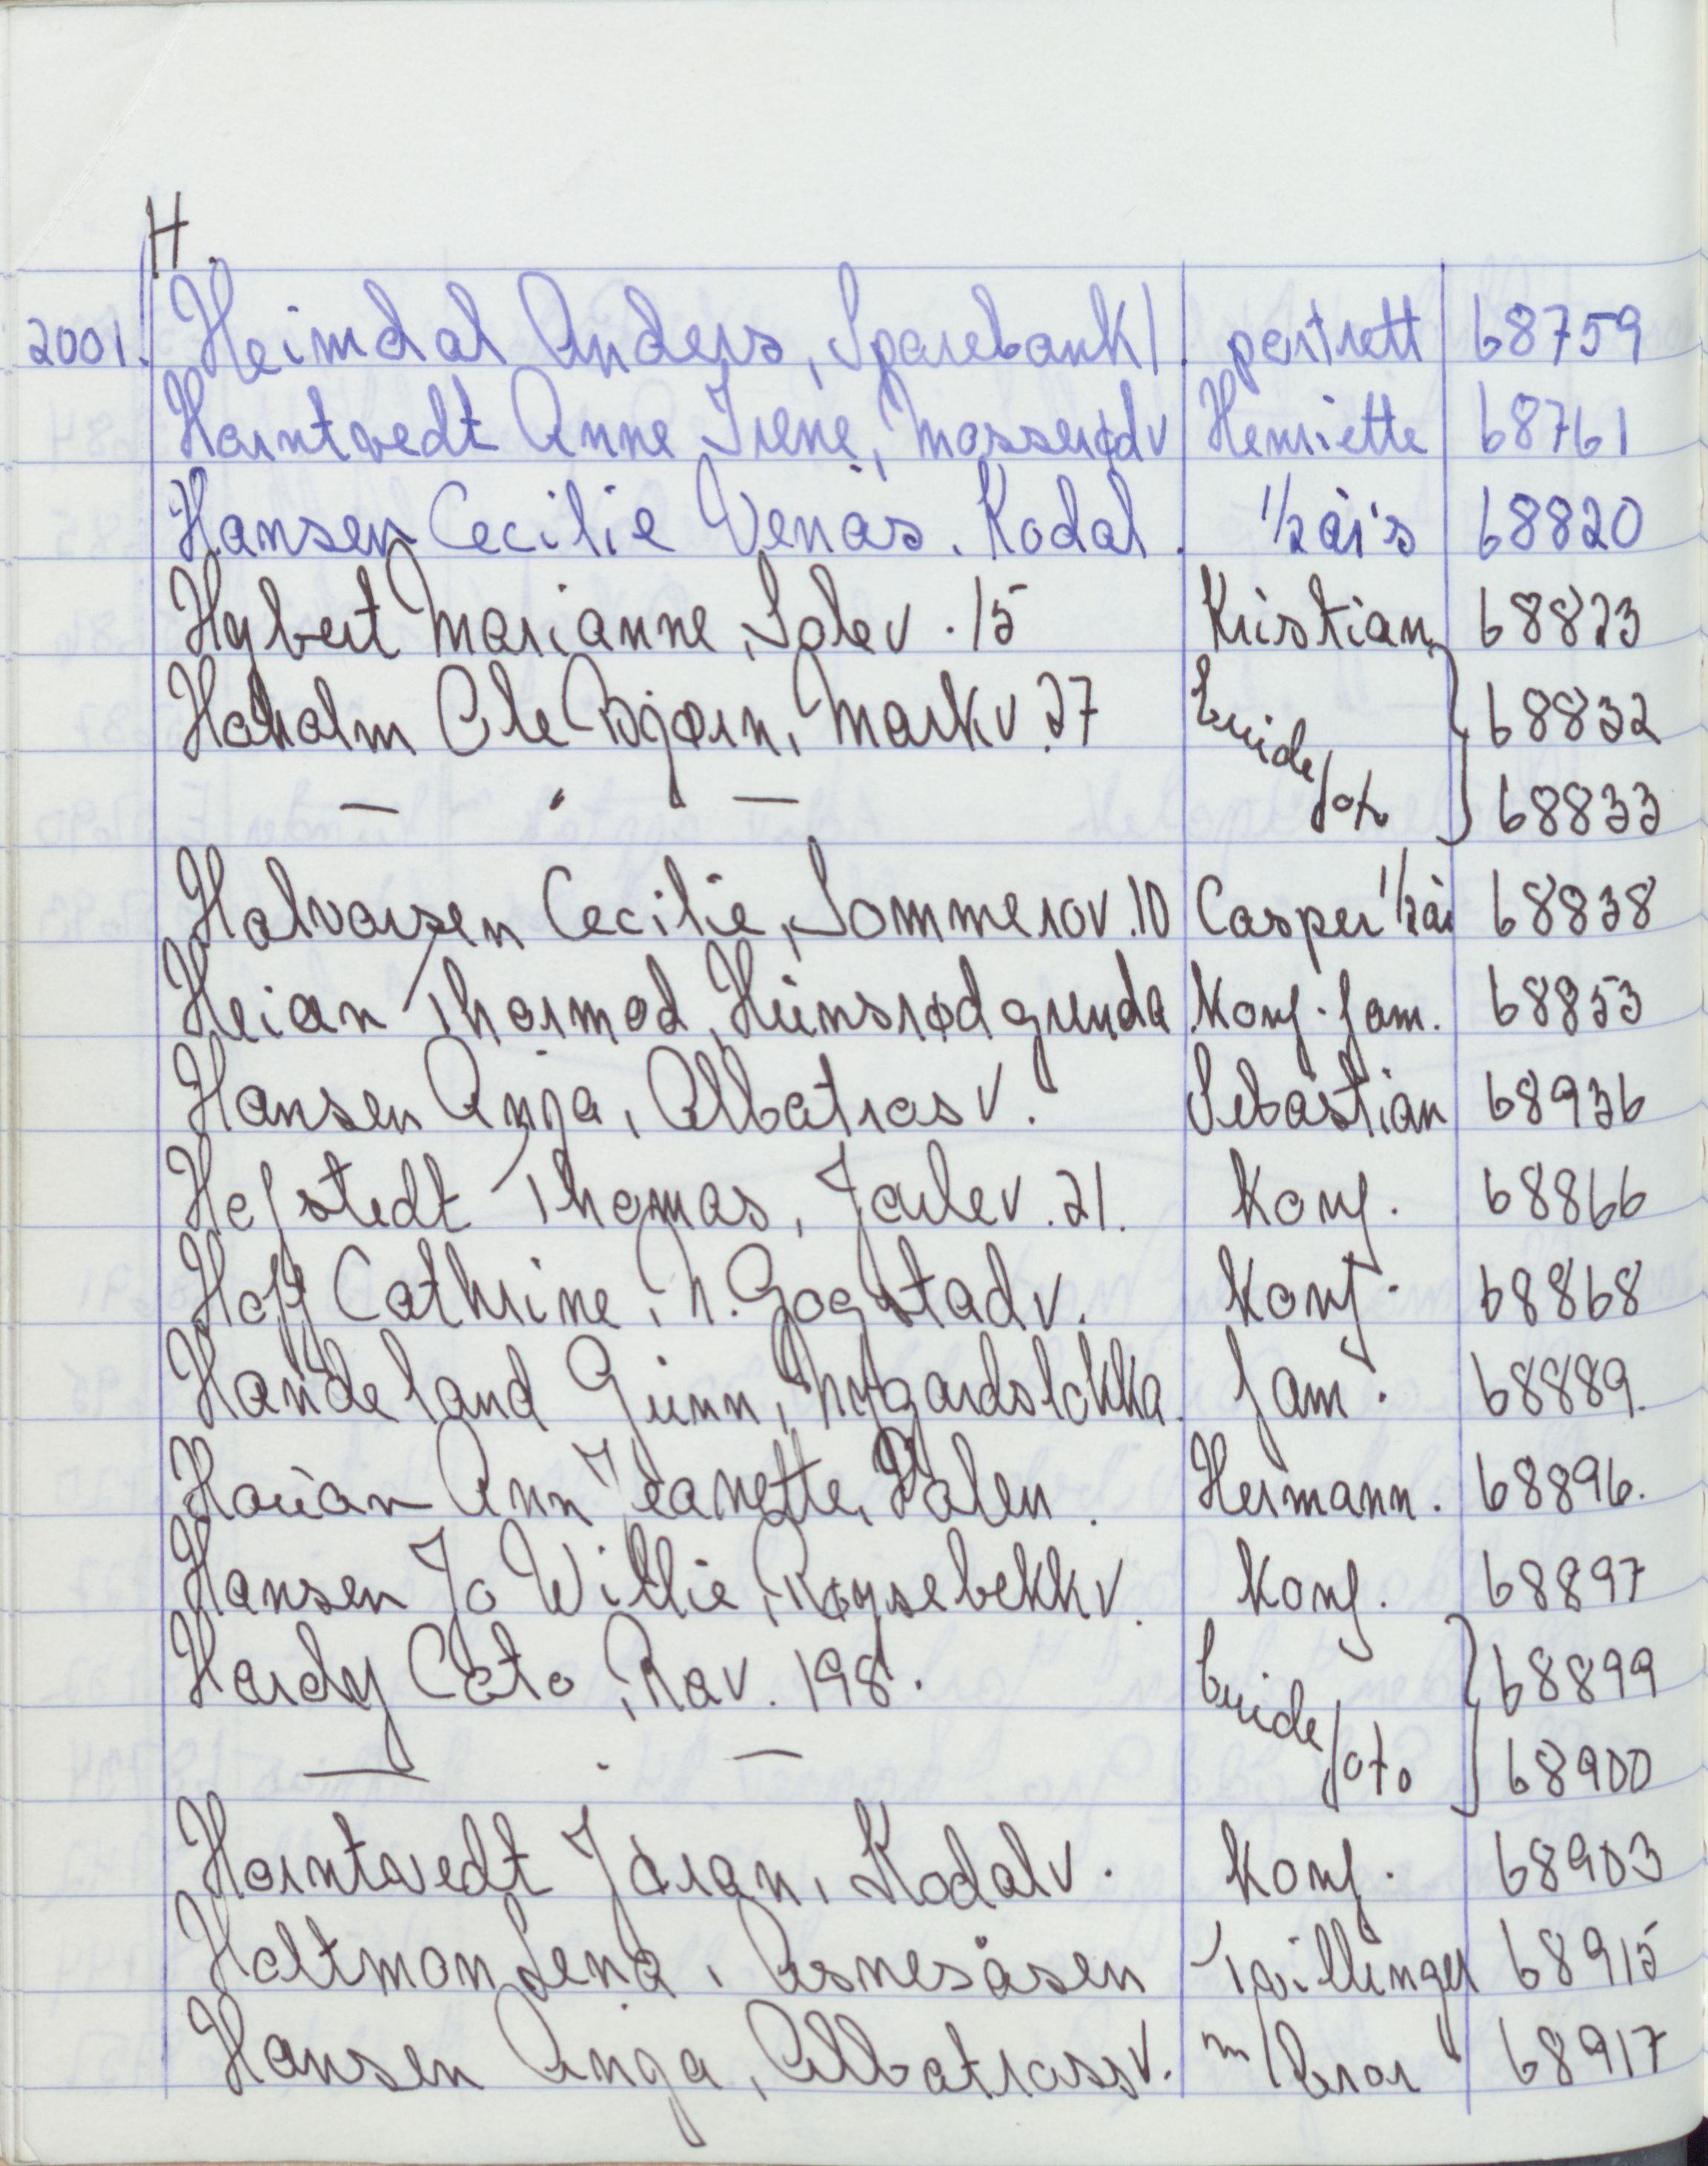 H.
2001. Heimdal Anders, Sparebank1. portrett 68759
Horntvedt Anne Irene, Mosserødv Henriette 68761
Hansen Cecilie Venås. Kodal. 1/2 år's 68820
Hybert Marianne, Solev. 15 Kristian 68823
Ole Bjørn, Markv. 27 brude 68832
— " — foto 68833
Halvorsen Cecilie, Sommerov. 10 Casper 1/2 år 68838
Heian Thormod, Heimsrødgrenda Konf. fam. 68853
Hansen Anja, Albatrosv. Sebastian 68936
Hofstedt Thomas, Jarlev. 21. Konf. 68866
Hoff Cathrine, N. Gogstadv. Konf. 68868
Handeland Gunn, Nygårdsløkka. fam. 68889.
Ann Jeanette, Hølen. Hermann. 68896.
Hansen Jo Willie, Røysebekkv. Konf. 68897
Hardy Cato, Rav. 198. brude 68899
— . — foto 68900
Horntvedt Jøran, Kodalv. Konf. 68903
Holtmon Lena, Åsnesåsen Tvillinger 68915
Hansen Anja, Albatrossv. m/bror 68917